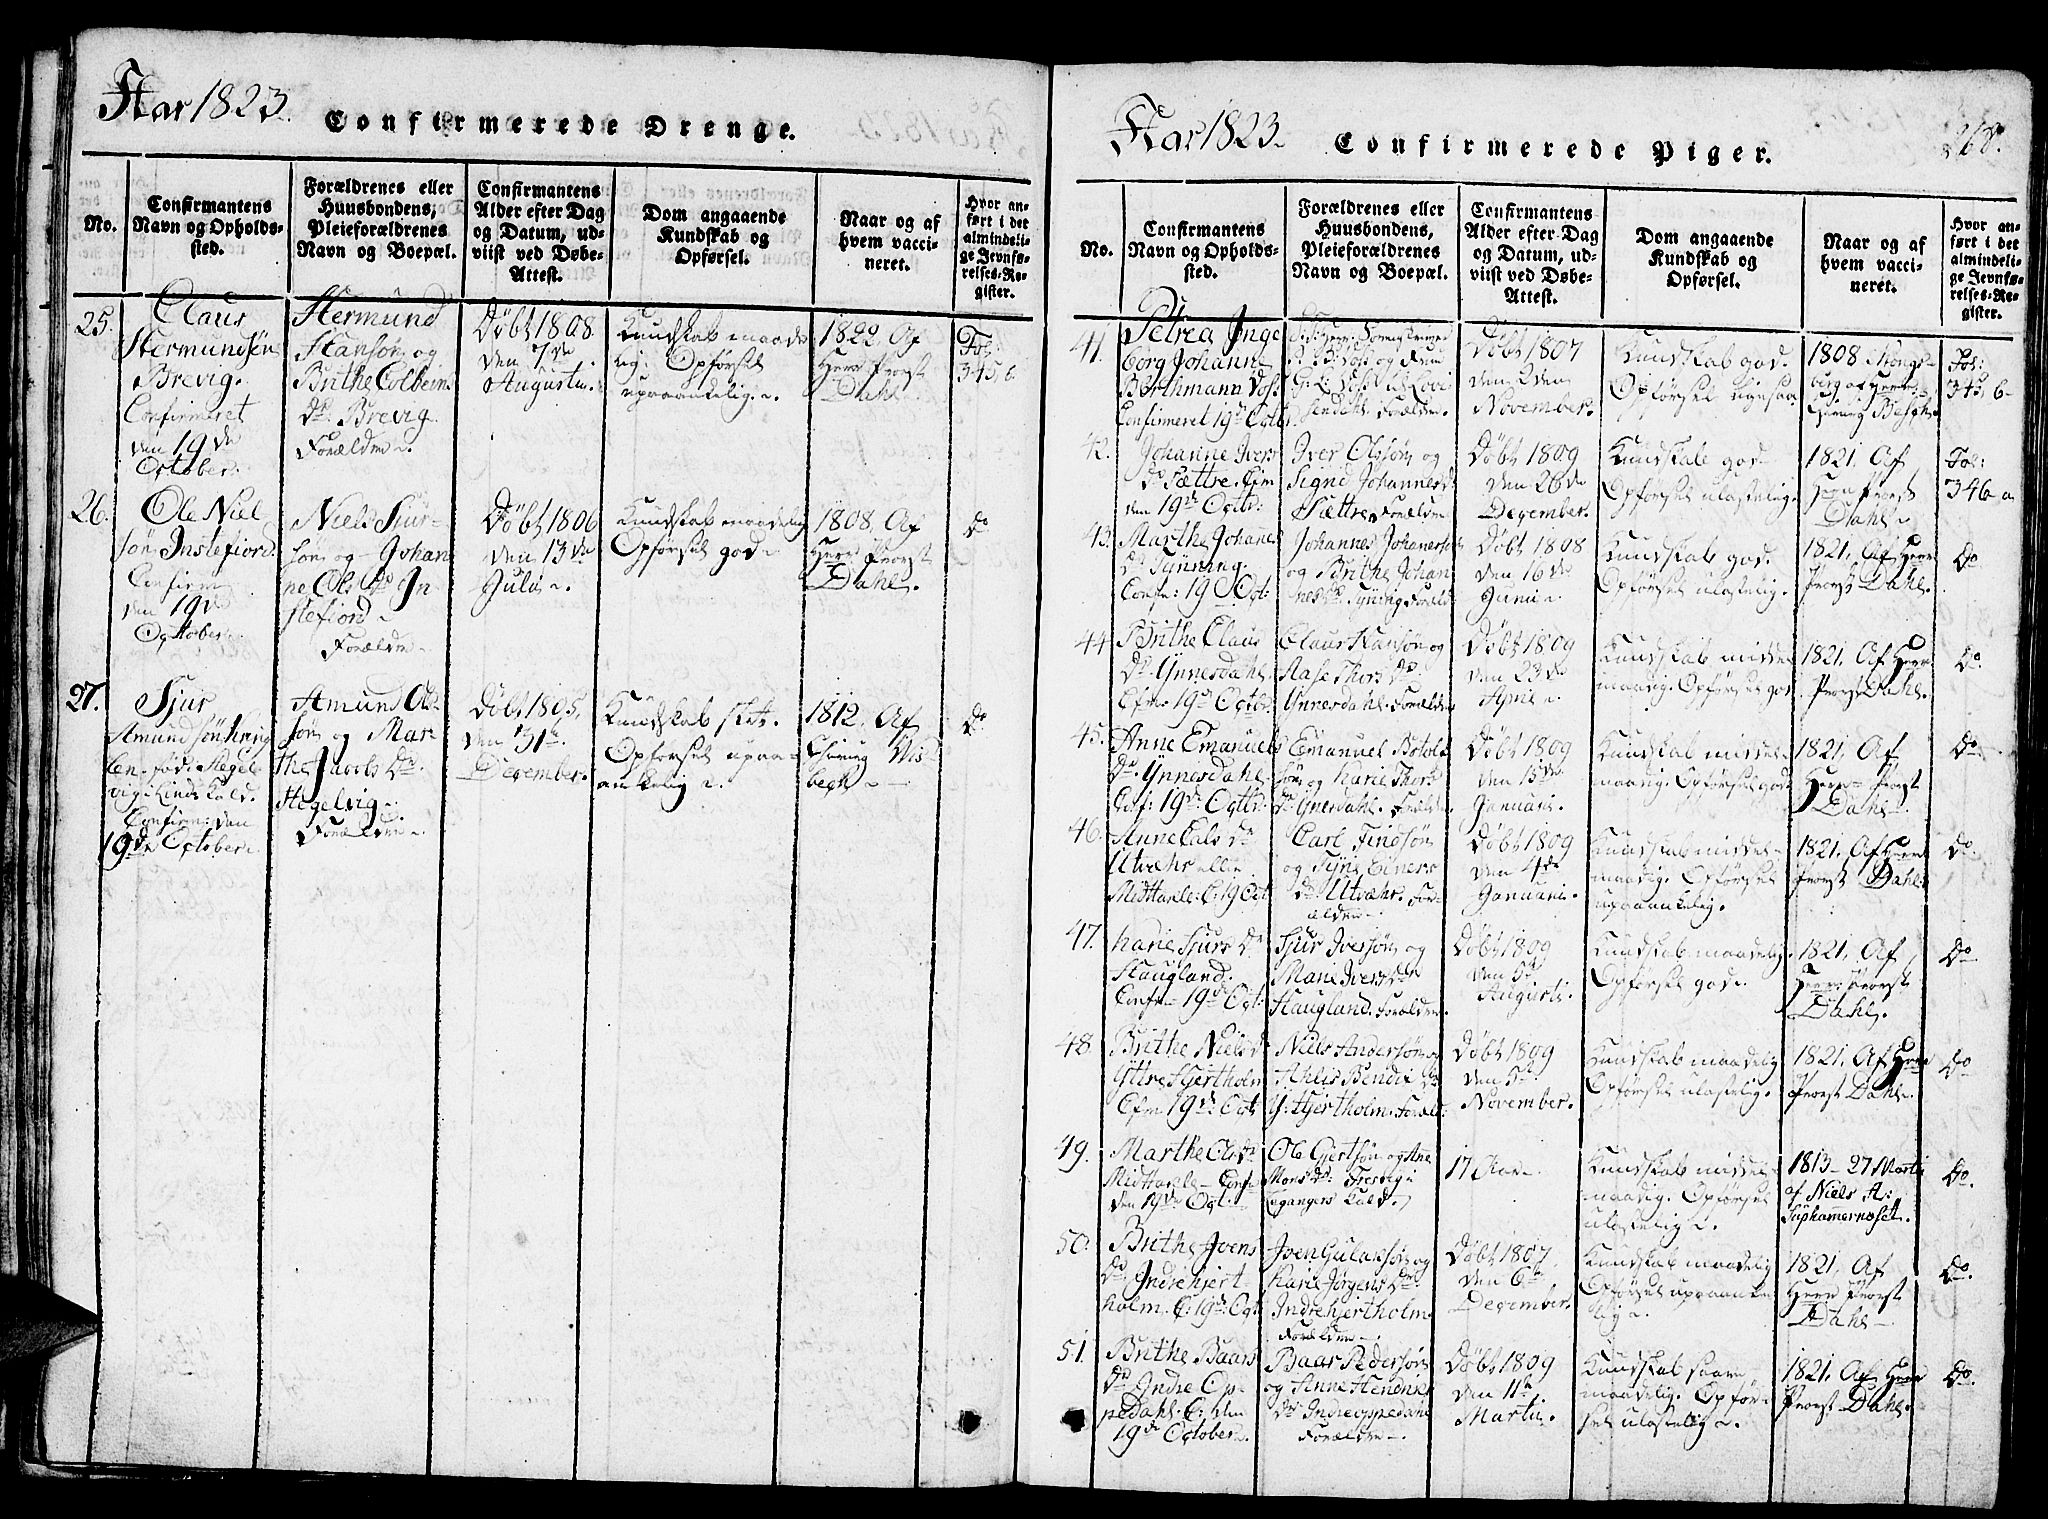 Aar 1823.
Confirmerede Drenge.
No.
Confirmantens
Navn og Opholds-
sted.
Forældrenes eller
Huusbondens,
Pleieforældrenes
Navn og Boepæl.
Confirmantens
Alder efter Dag
og Datum, ud-
viist ved Døbe-
Attest.
Dom angaaende
Kundskab og
Opførsel.
Naar og af
hvem vacci-
neret.
Hvor an-
ført i det
almindeli-
ge Jevnfø-
relses-Re-
gister.
25.
Claus
Hermundsön
Brevig.
Confirmeret
den 19de
October.
Hermund
Hansön og
Brithe Colbein
Dr Brevig
Forældre.
Døbt 1808
den 7de
Augustii.
Kundskab maade
lig. Opførsel
upaaankelig.
1822 Af
Herr Provst
Dahl.
Fol:
345 b
26.
Ole Niel
sön Instefiord.
Confirm
den 19de
October.
Niels Siur-
sön og Johan
ne Ols Dr In-
stefiord
Forældre
Døbt 1806
den 13de
Julii.
Kundskab maadelig
Opførsel god
1808. Af
Herr Provst
Dahl.
Do
27.
Sjur
Amundsön
Confirm: den
19de October.
Amund Ol-
sön og Mar-
the Jacobs Dr
Hegelvig.
Forældre
Døbt 1805,
den 31te
December.
Kundskab slet.
Opførsel upaa-
ankelig.
1812. Af
Do
Aar 1823.
Confirmerede Piger.
268.
No.
Confirmantens
Navn og Opholds-
sted.
Forældrenes eller
Huusbondens,
Pleieforældrenes
Navn og Boepæl.
Confirmantens
Alder efter Dag
og Datum, ud-
viist ved Døbe-
Attest.
Dom angaaende
Kundskab og
Opførsel.
Naar og af
hvem vacci-
neret.
Hvor an-
ført i det
almindeli-
ge Jevnfø-
relses-Re-
gister.
41.
Petrea Inge
borg Johanne
Borthmann Voss
Confirmeret 19de Octbr.
Forældre.
Døbt 1807
den 2den
November.
Kundskab god.
Opførsel ligesaa.
1808
Fol:
345, b
42.
Johanne Ivers
Dr Sættre
den 19de Octbr:
Iver Olssön og
Sigrid Johannes Dr
Sættre Forældre
Døbt 1809
den 26de
December.
Kundskab god
Opførsel ulastelig.
1821. Af
Herr Provst
Dahl
Fol:
346 a
43.
Marthe Johanes
Dr Tynning.
Confr: 19 Oct:
Johannes Johanessön
og Brithe Johan
nes Dr Tyning Foræld:
Døbt 1808
den 16de
Junii
Kundskab god.
Opførsel ulastelig.
1821, Af Herr
Provst Dahl.
Do
44
Brithe Claus
Dr Ynnesdahl
Cfm 19de Octbr.
Claus Hansön og
Aase Thors Dr
Ynnesdahl Forældre
Døbt 1809
den 23de
April
Kundskab middel
maadig. Opførsel god
1821. Af Herr
Provst Dahl.
Do.
45.
Anne Emanuels
Dr Ynnesdahl
Conf: 19de Octbr:
Emanuel Botolf
sön og Karie Thors
Dr Ynesdahl. Forældre
Døbt 1809
den 15de
Januarii.
Kundskab middel-
maadig. Opførsel god
1821, Af
Herr Provst
Dahl
Do.
46.
Anne Cals Dr
Utvæhr eller
C: 19 Oct
Carl Findsön
og
Dr Utvæhr. For-
ældre
Døbt 1809
den 4de
Januarii.
Kundskab middel-
maadig. Opførsel
upaaankelig.
1821, Af Herr
Provst Dahl
Do
47.
Karie Sjurs Dr
Haugland.
Confr 19de Oct:
Sjur Iversön og
Marie Ivers Dr
Haugland. Forældre.
Døbt 1809
den 5te
Augusti.
Kundskab maadelig.
Opførsel god.
1821, Af
Herr: Provst
Dahl.
Do
48.
Brithe Niels Dr
Yttre Hjertholm
Cfm 19de Oct
Niels Andersön og
Ahlis Bendix Dr
Y: Hjertholm. Foræld:
Døbt 1809
den 5te
November.
Kundskab maadelig
Opførsel ulastelig.
1821. Af Herr
Provst Dahl
Do
49.
Marthe Ols Dr
Confr
den 19de Oct.
Ole Gjertsön og Ane
Mons Dr
17 Aar
Kundskab middel-
maadig. Opførsel
ulastelig.
1813 27 Martii
af Niels A:
Do.
50.
Brithe Ivers
Dr Indrehjert-
holm. C: 19de Oct
Iver Gulaksön og
Karie Jørgens Dr
Indrehjertholm.
Forældre
Døbt 1807
den 6te
December.
Kundskab maadelig
Opførsel upaaanke
lig
1821, Af
Herr Provst
Dahl
Do.
51.
Brithe Baars
Dr Indre Op-
pedahl. C: den
19de October.
Baar Pedersön
og Anne Hendriks
Dr Indreoppedahl
Forældre
Døbt 1809
den 11te
Martii.
Kundskab saare
maadelig. Opfør-
sel ulastelig.
1821, Af Herr
Provst Dahl.
Do.